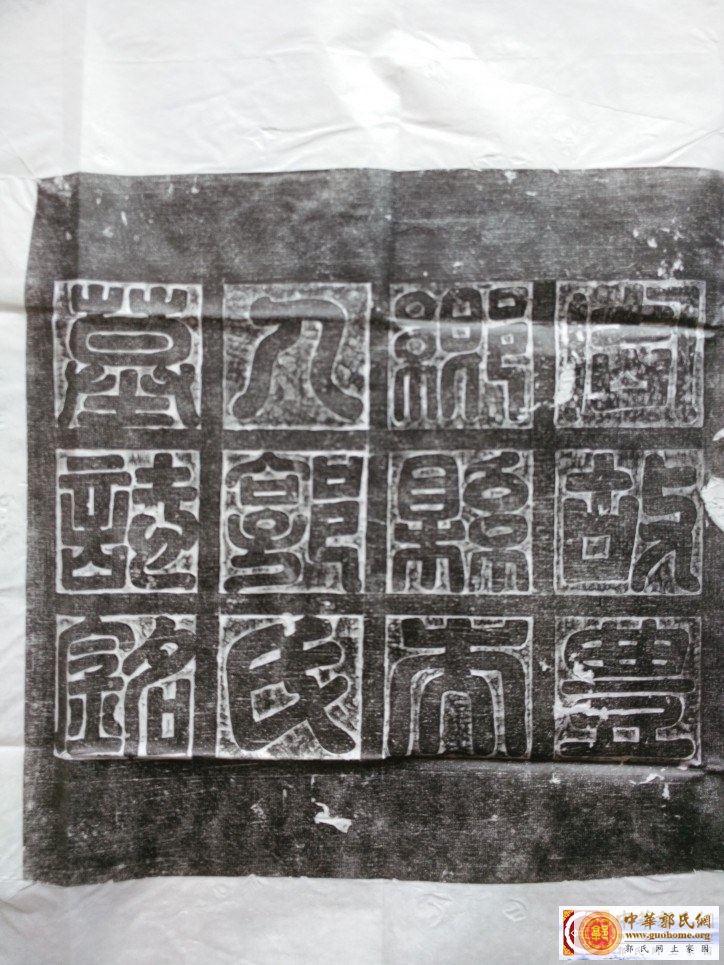 故豊
鄉縣夫
人郭氏
墓誌銘
中華郭氏網
www.guohome.org
郭氏網上家園